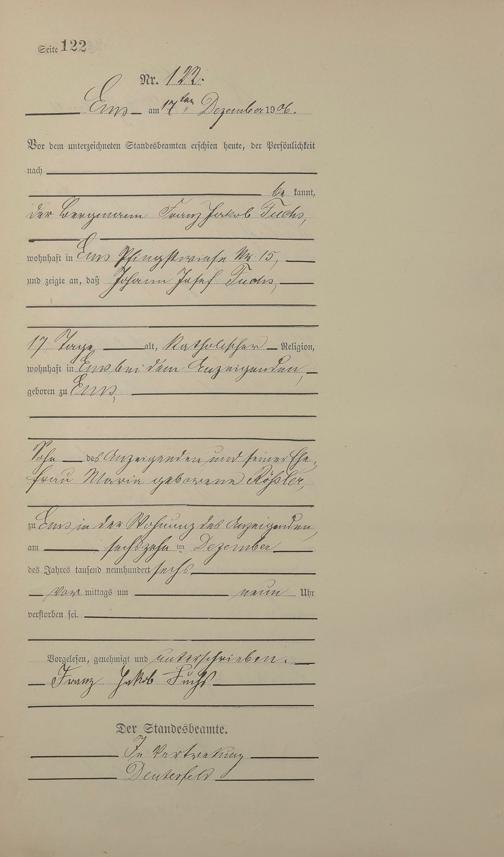 Seite 122
Nr. 122.
Ems am 17ten Dezember 1906.
Vor dem unterzeichneten Standesbeamten erschien heute, der Persönlichkeit
nach
be kannt,
der Bergmann Franz Jakob Fuchs,
wohnhaft in Ems Pfingstwiese Nr 15,
und zeigte an, daß Johann Josef Fuchs,
17 Tage alt, katholischer Religion,
wohnhaft in Ems bei dem Anzeigenden,
geboren zu Ems,
Sohn des Anzeigenden und seiner Ehe-
frau Maria geborene Rößler,
zu Ems in der Wohnung des Anzeigenden,
am sechszehnten Dezember
des Jahres tausend neunhundert sechs
Vor mittags um neun Uhr
verstorben sei.
Vorgelesen, genehmigt und unterschrieben.
Franz Jakob Fuchs
Der Standesbeamte.
In Vertretung